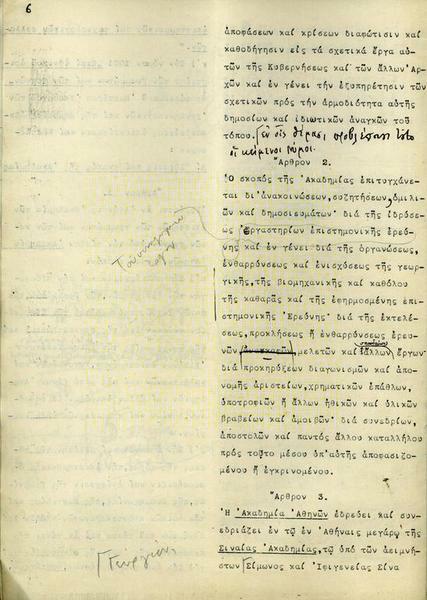 6
ἀποφάσεων καί κρίσεων διαφώτισιν καί
καθοδήγησιν εἰς τά σχετικά ἔργα αὐ-
τῶν τῆς Κυβερνήσεως καί τῶν ἄλλων Ἀρ-
χῶν καί ἐν γένει τήν ἐξυπηρέτησιν τῶν
σχετικῶν πρός τήν ἁρμοδιότητα αὐτῆς
δημοσίων καί ἰδιωτικῶν ἀναγκῶν τοῦ
τόπου.
οἱ κείμενοι νόμοι.
Ἄρθρον 2.
Ὁ σκοπός τῆς Ἀκαδημίας ἐπιτυγχάνε-
ται δι' ἀνακοινώσεων, συζητήσεων, ὁμιλι-
ῶν καί δημοσιευμάτων· διά τῆς ἱδρύσε-
ως ἐργαστηρίων ἐπιστημονικῆς ἐρεύ-
νης καί ἐν γένει διά τῆς ὀργανώσεως,
ἐνθαρρύνσεως καί ἐνισχύσεως τῆς γεωρ-
γικῆς, τῆς βιομηχανικῆς καί καθόλου
τῆς καθαρᾶς καί τῆς ἐφηρμοσμένης ἐπι-
στημονικῆς Ἐρεύνης· διά τῆς ἐκτελέ-
σεως, προκλήσεως ἤ ἐνθαρρύνσεως ἐρευ-
νῶν, μελετῶν καί ἄλλων ἔργων·
διά προκηρύξεων διαγωνισμῶν καί ἀπο-
νομῆς ἀριστείων, χρηματικῶν ἐπάθλων,
ὑποτροφιῶν ἤ ἄλλων ἠθικῶν καί ὑλικῶν
βραβείων καί ἀμοιβῶν· διά συνεδρίων,
ἀποστολῶν καί παντός ἄλλου καταλλήλου
πρός τοῦτο μέσου ὑπ' αὐτῆς ἀποφασιζο-
μένου ἤ ἐγκρινομένου.
Ἄρθρον 3.
Ἡ Ἀκαδημία Ἀθηνῶν ἑδρεύει καί συνε-
εδριάζει ἐν τῷ ἐν Ἀθήναις μεγάρῳ τῆς
Σιναίας Ἀκαδημίας, τῷ ὑπό τῶν ἀειμνή-
στων Σίμωνος καί Ἰφιγενείας Σίνα